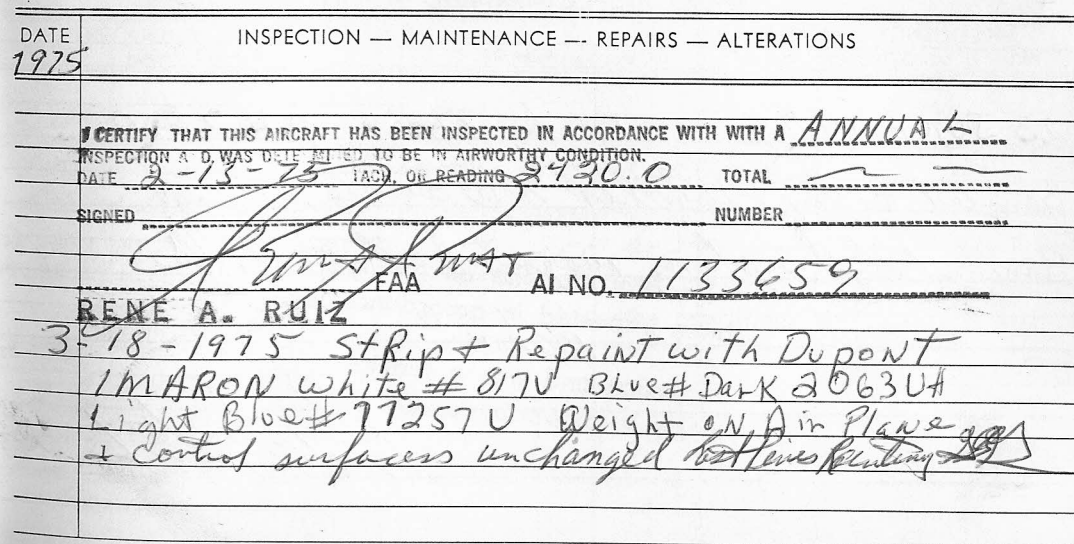 DATE INSPECTION — MAINTENANCE — REPAIRS — ALTERATIONS
1975
I CERTIFY THAT THIS AIRCRAFT HAS BEEN INSPECTED IN ACCORDANCE WITH WITH A ANNUAL
INSPECTION A D, WAS DETE MI ED TO BE IN AIRWORTHY CONDITION.
DATE 2-13-75 TACH, OR READING 2420.0 TOTAL
SIGNED NUMBER
FAA AI NO. 1133659
RENE A. RUIZ
3-18-1975 Strip + Repaint with Dupont
IMARON White # 817U BLue# Dark 2063UH
Light Blue# 77257U Weight on Air Plane
+ control surfaces unchanged